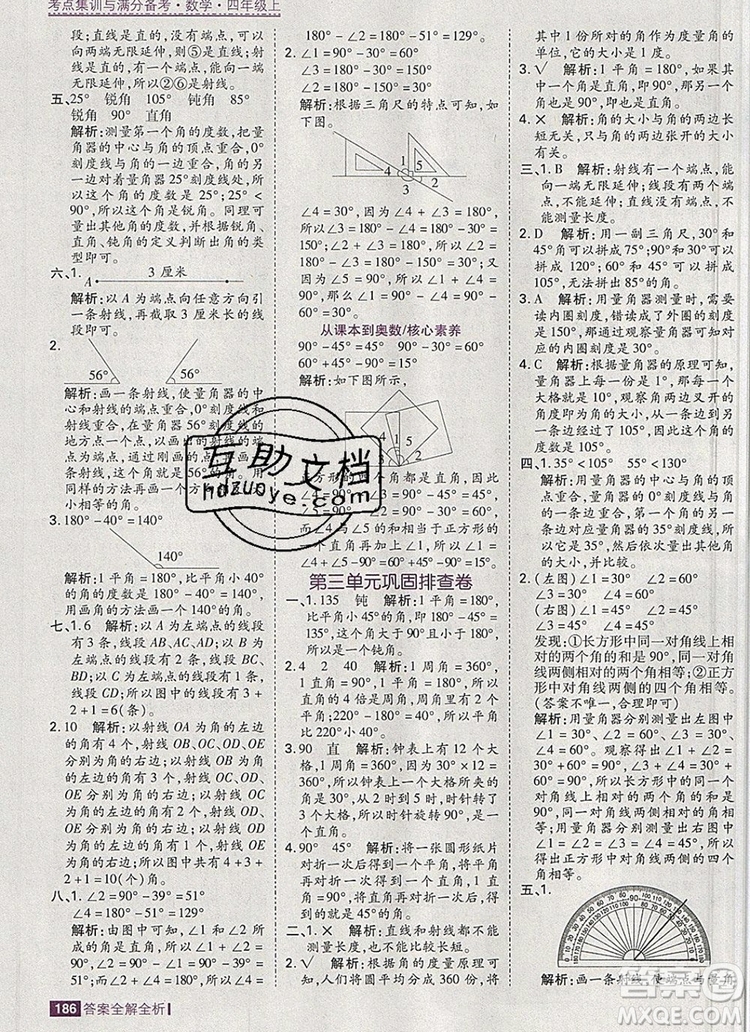 考点集训与满分备考·数学·四年级上
段;直线是直的,没有端点,可以向
两端无限延伸;射线是直的,有一
个端点,能向一端无限延伸,不能向
无限延伸,所以②⑥是射线。
五、25° 锐角 105° 钝角 85°
锐角 90° 直角
解析:测量第一个角的度数,把量
角器的中心与角的顶点重合,0°刻
度线与角的一条边重合,角的另一
边对着量角器25°刻度线处,所以
这个角的度数是25°,25°<
90°,所以这个角是锐角。同理可
量出其他角的度数,并根据锐角、
直角、钝角的定义判断出角的类
型即可。
六、1. 3 厘米
A
解析:以A为端点向任意方向画
一条射线,再截取3厘米长的线
段即可。
2.
56° 56°
解析:画一条射线,使量角器的中
心和射线的端点重合,0°刻度线
和射线重合,在量角器56°刻度线
的地方点一个点,以画出的射线的
端点为端点,通过刚画的点,再画
一条射线,即可画出56°的角。用
同样的方法再画一个方向不同的
角即可。
3. 180°-40°=140°
140°
解析:1平角=180°,180°-40°=
140°,根据角的画法画出140°的
角即可。
七、1. 6 解析:以A为左端点的线段
有线段AB、AC、AD;以B为
左端点的线段有线段BC、BD;
以C为左端点的线段有线段
CD,所以一共有线段的条数:3+
2+1=6(条)。
2. 10 解析:以射线OA为角的左边
的角有射线OB、OC、OD、OE
分别为角的右边;以射线OB为
角的左边的角有射线OC、OD、OE
分别为角的右边;以射线OC为
角的左边的角有射线OD、OE
分别为角的右边;以射线OD为
角的左边的角有射线OE为角的
右边,所以角的个数共有4+3+
2+1=10(个)。
八、1. ∠1=∠2=90°-39°=51°
∠4=180°-39°=141°
解析:由图中可知,∠1和∠3组
成一个直角,所以∠1=90°-
39°=51°;∠2和∠3组成一个直
角,所以∠2=90°-39°=51°;由
图中可知,∠4和∠3组成一个平
角,所以∠4=180°-39°=141°。
180°-90°-60°=30°
∠3=180°-30°=150°
∠2=180°-150°=30°
∠1=180°-30°=150°
解析:根据三角尺的特点可知,如
下图。
1 5
4 2
3
∠4=30°,因为∠4+∠3=180°,
所以∠3=180°-30°=150°;因
为∠3+∠2=180°,所以∠2=
180°-150°=30°;因为∠2+
∠1=180°,所以∠1=180°-
30°=150°;因为∠4+∠5=
90°,那么∠5=90°-30°=60°。
从课本到奥数/核心素养
90°-45°=45° 90°-30°=60°
60°+45°-90°=15°
解析:如下图所示。
4 1 5
方形的四个角都是直角,
所以∠5=90°-∠2=90°-45°=
45°;∠4=90°-∠3=90°-30°=
60°,∠4与∠5在与正方形的一
个直角组合时重叠了∠1,所以
∠1=∠4+∠5-90°=60°+
45°-90°=15°。
第三单元巩固排查卷
一、1. 135 钝 解析:1平角=180°,
180°-45°=135°,大于90°且小
于180°,所以是一个钝角。
2. 4 2 40 解析:1周角=360°,
1直角=90°,360÷90=4,所以
1周角=4直角;1周角=360°,
1平角=180°,360÷180=2,所以
1周角=2平角;1平角=180°,
220°-180°=40°。
3. 90 直 解析:钟表上有12个大
格,每个大格的夹角是360°÷12=
30°,所以钟表上一个大格所夹的
角的度数为30°,3时时,时针转了3
个大格,所以时针旋转,30°×3=
90°。
4. 90° 45° 解析:将一张圆形纸片
对折一次后得到一个平角,再
对折一次后得到一个直角,为90°,再
对折一次后得到一个锐角,为
90°÷2=45°,所以将圆形纸片对
折3次后可得到45°的角。
二、1. × 解析:直线和射线都不能
测量长度,所以不能比较长短。
2. × 解析:根据角的度量原理可
知,人们将圆平均分成360份,将
其中1份所对的角作为度量角的
单位。
3. √ 解析:1平角=180°,180°÷
2=90°,所以如果其中一个角是
直角,那么另一个角也是直角。
4. × 解析:角的大小与角的两边长
短无关,与角的两边张开的大小
有关。
三、1. B 解析:射线有一个端点,能
向一端无限延伸;直线没有端
点,不能测量长度。
2. D 解析:用一副三角尺,其中
30°和45°可以拼成75°;90°和
45°可以拼成135°;60°和45°可以
拼成105°,无法拼出85°的角。
3. A 解析:用量角器测量时,需要
读内圈刻度,结果错读成了外圈
的刻度,那么通过观察量角器可
知,内圈刻度是50°。
4. C 解析:根据量角器的原理可知,
1平角=180°,所以每一个
大格就是10°,观察角两边叉开的
角度即为角的度数,为60°。
四、1. 35°<105° 55°<130°
解析:测量角时,量角器的中心与
角的顶点重合,0°刻度线与角的
一条边重合,另一条边对着的量
角器的刻度就是这个角的度数,
据此方法分别量出四个角的度
数,并比较。
2. (左图)∠1=60°,∠2=60°
(右图)∠1=45°,∠2=45°
发现:①长方形中同一对角线上相
对的两个角的和是90°,同一对角
线上相对的两个角相等;②正方
形中对角线两侧的四个角相等。
(答案不唯一,合理即可)
解析:用量角器分别测量出左图
中∠1=60°,∠2=60°,右图中
∠1=45°,∠2=45°,然后得出
∠2=60°。观察得出左图中对角
线上相对的两个角的和是90°,
同一对角线上相对的两个角相
等;用量角器分别测量出右图中
∠1=45°,∠2=45°,观察得出
正方形中对角线两侧的四个角相
等。
五、1.
解析:画一条射线,使端点与量角
互助文档
hdzuoye.com
186 答案全解全析
答案圈
MXQE.COM